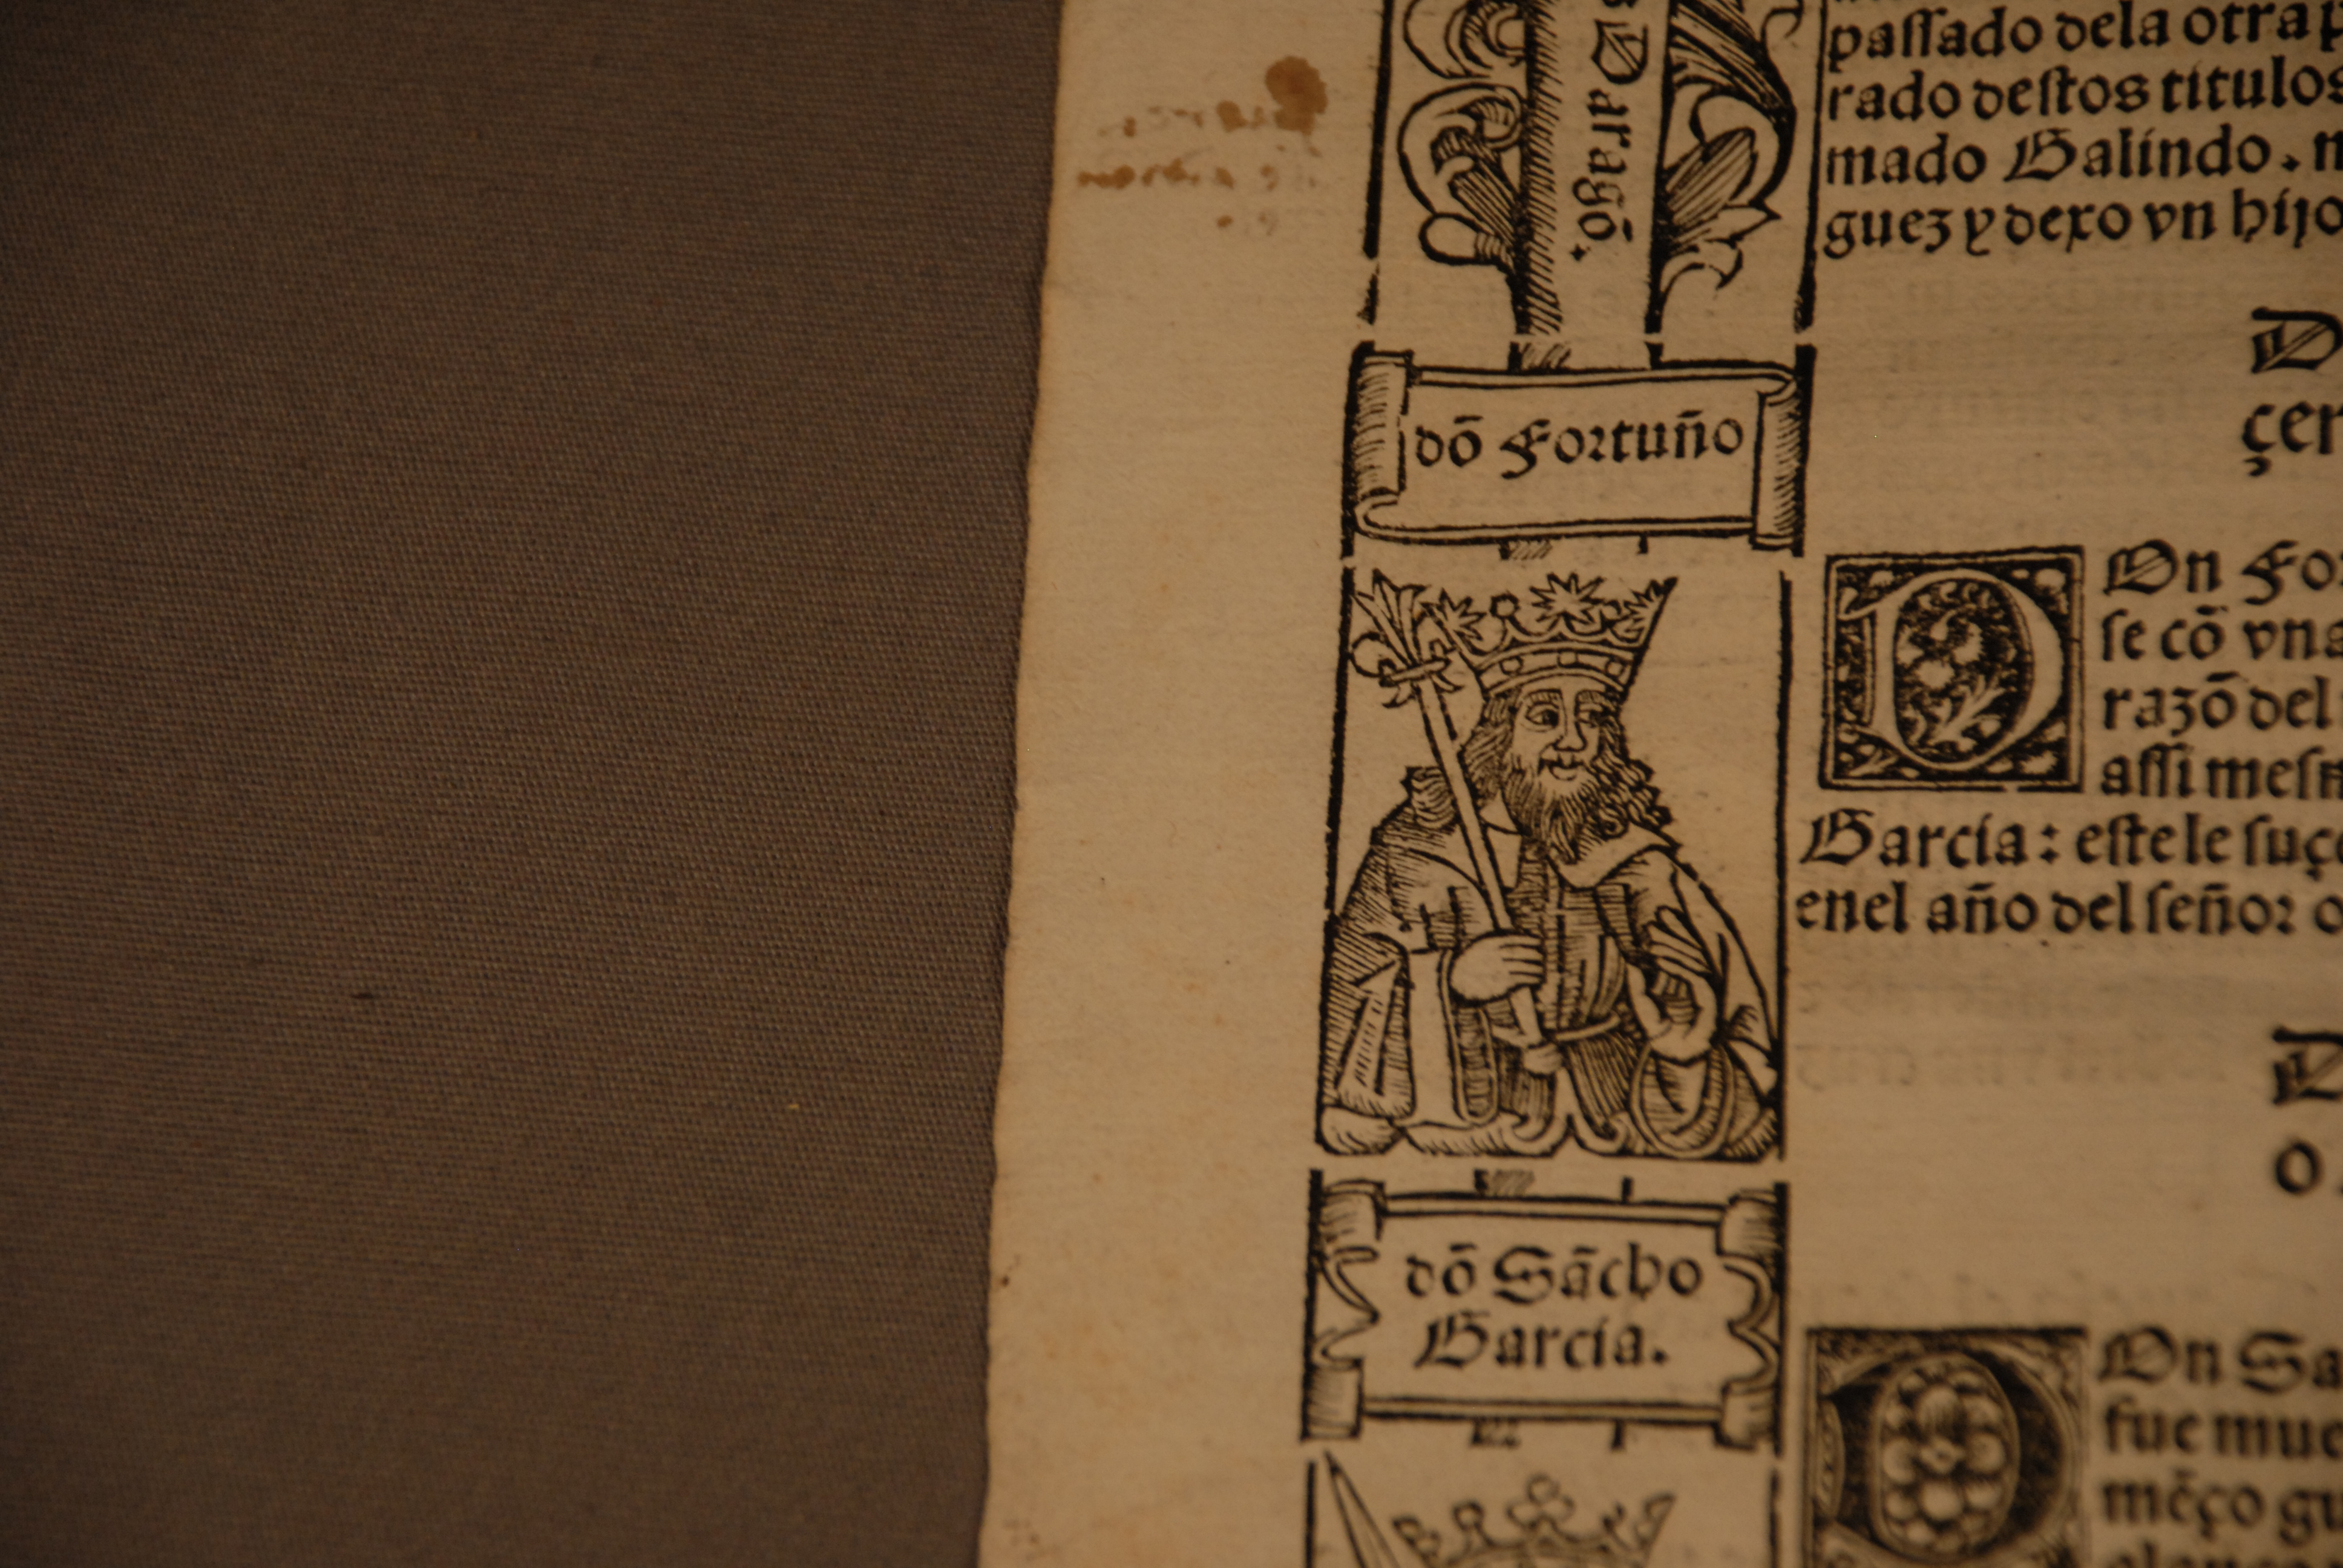 Daragō.
dō Fortuño
dō Sācho
Garcia.
passado dela otra p
rado destos titulos
mado Galindo. m
guez y dexo vn hijo
D
çer
DOn For
se cō vna
razō del
assi mesm
Garcia: este le suçe
enel año del señor o
D
o.
DOn Sa
fue muc
mēço gu